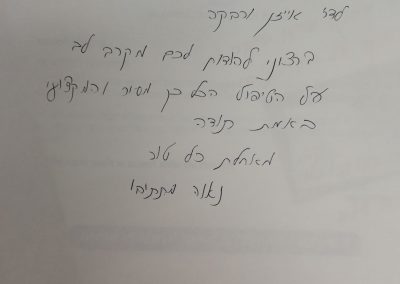 לדר אייזן ורבקה
ברצוני להודות לכם מקרב לב
על הטיפול הכל כך מסור והמקצועי
באמת תודה
מאחלת כל טוב
נאוה מתתיהו